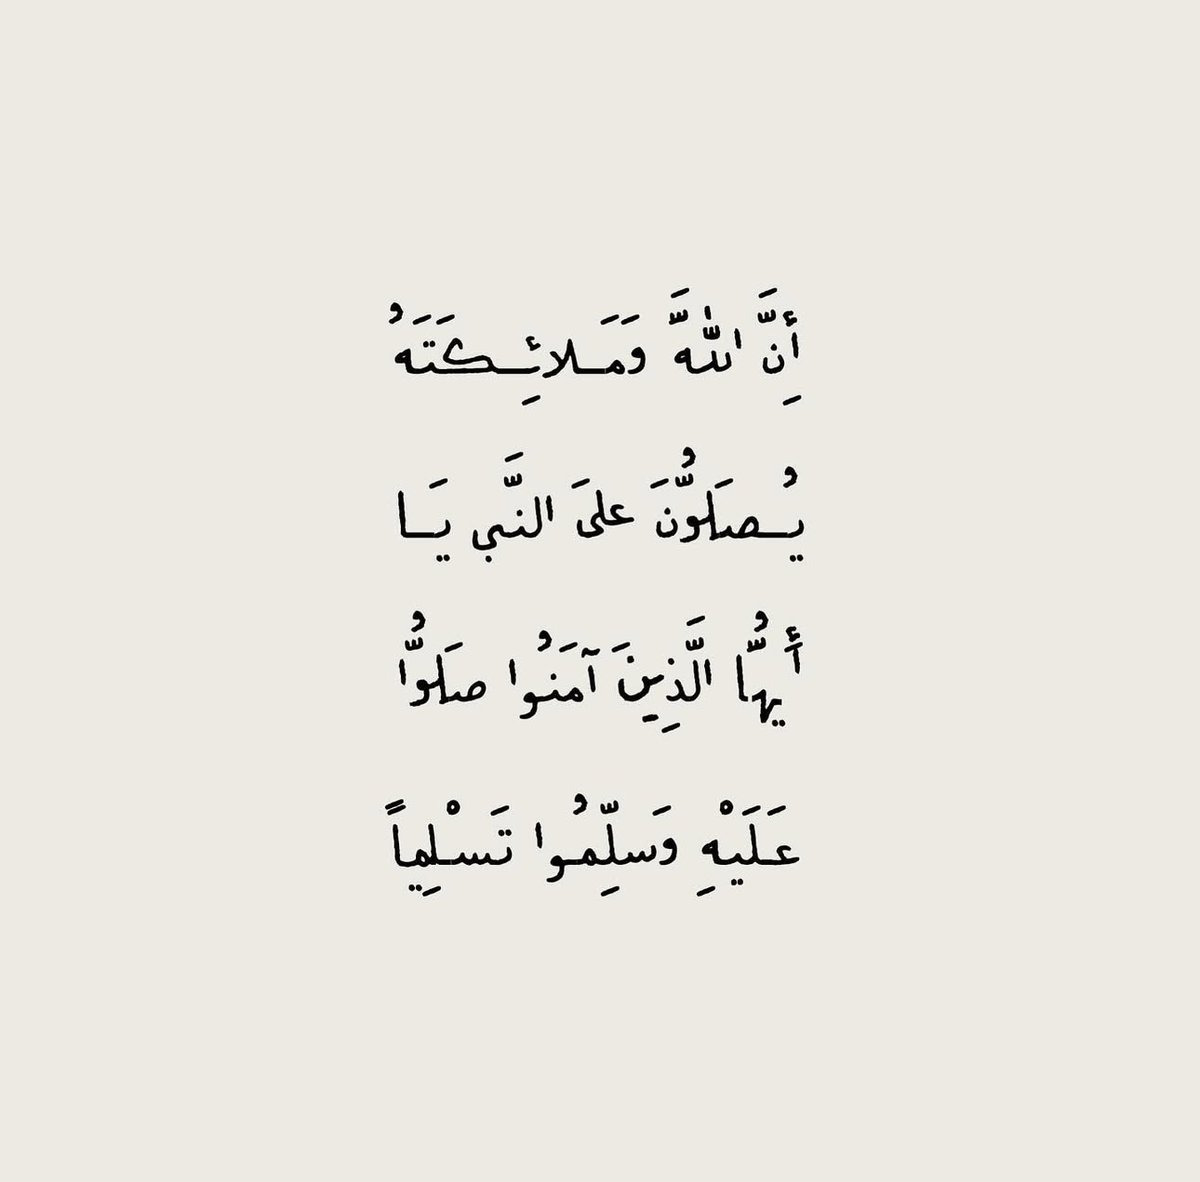 أِنَّ اللهَّ وَمَـلائِـكَتَهُ
يُـصَلوُّنَ عَلىَ النَّبي يَـا
أَيهُّا الَّذِينَ آمَنُوا صَلوُّا
عَـلَيْهِ وَسَلِّمُوا تَسْلِيماً